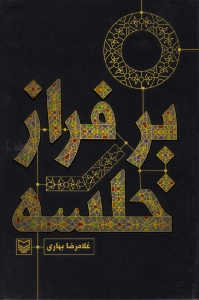 بر فراز
خلسه
غلامرضا بهاری